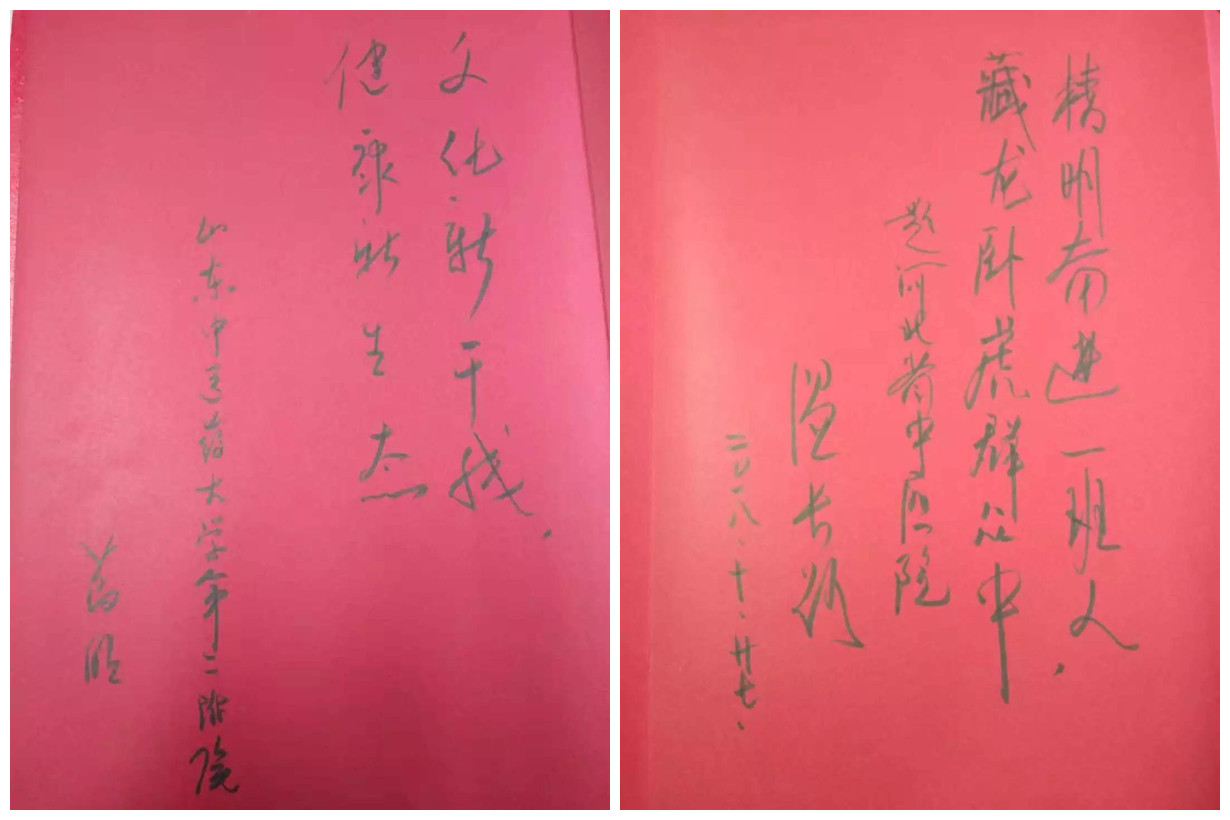 文化新干线，
健康新生态
山东中医药大学第二附院
葛明
精明奋进一班人，
藏龙卧虎群众中
题河北省中医院
温长路
二〇一八.十.廿七.